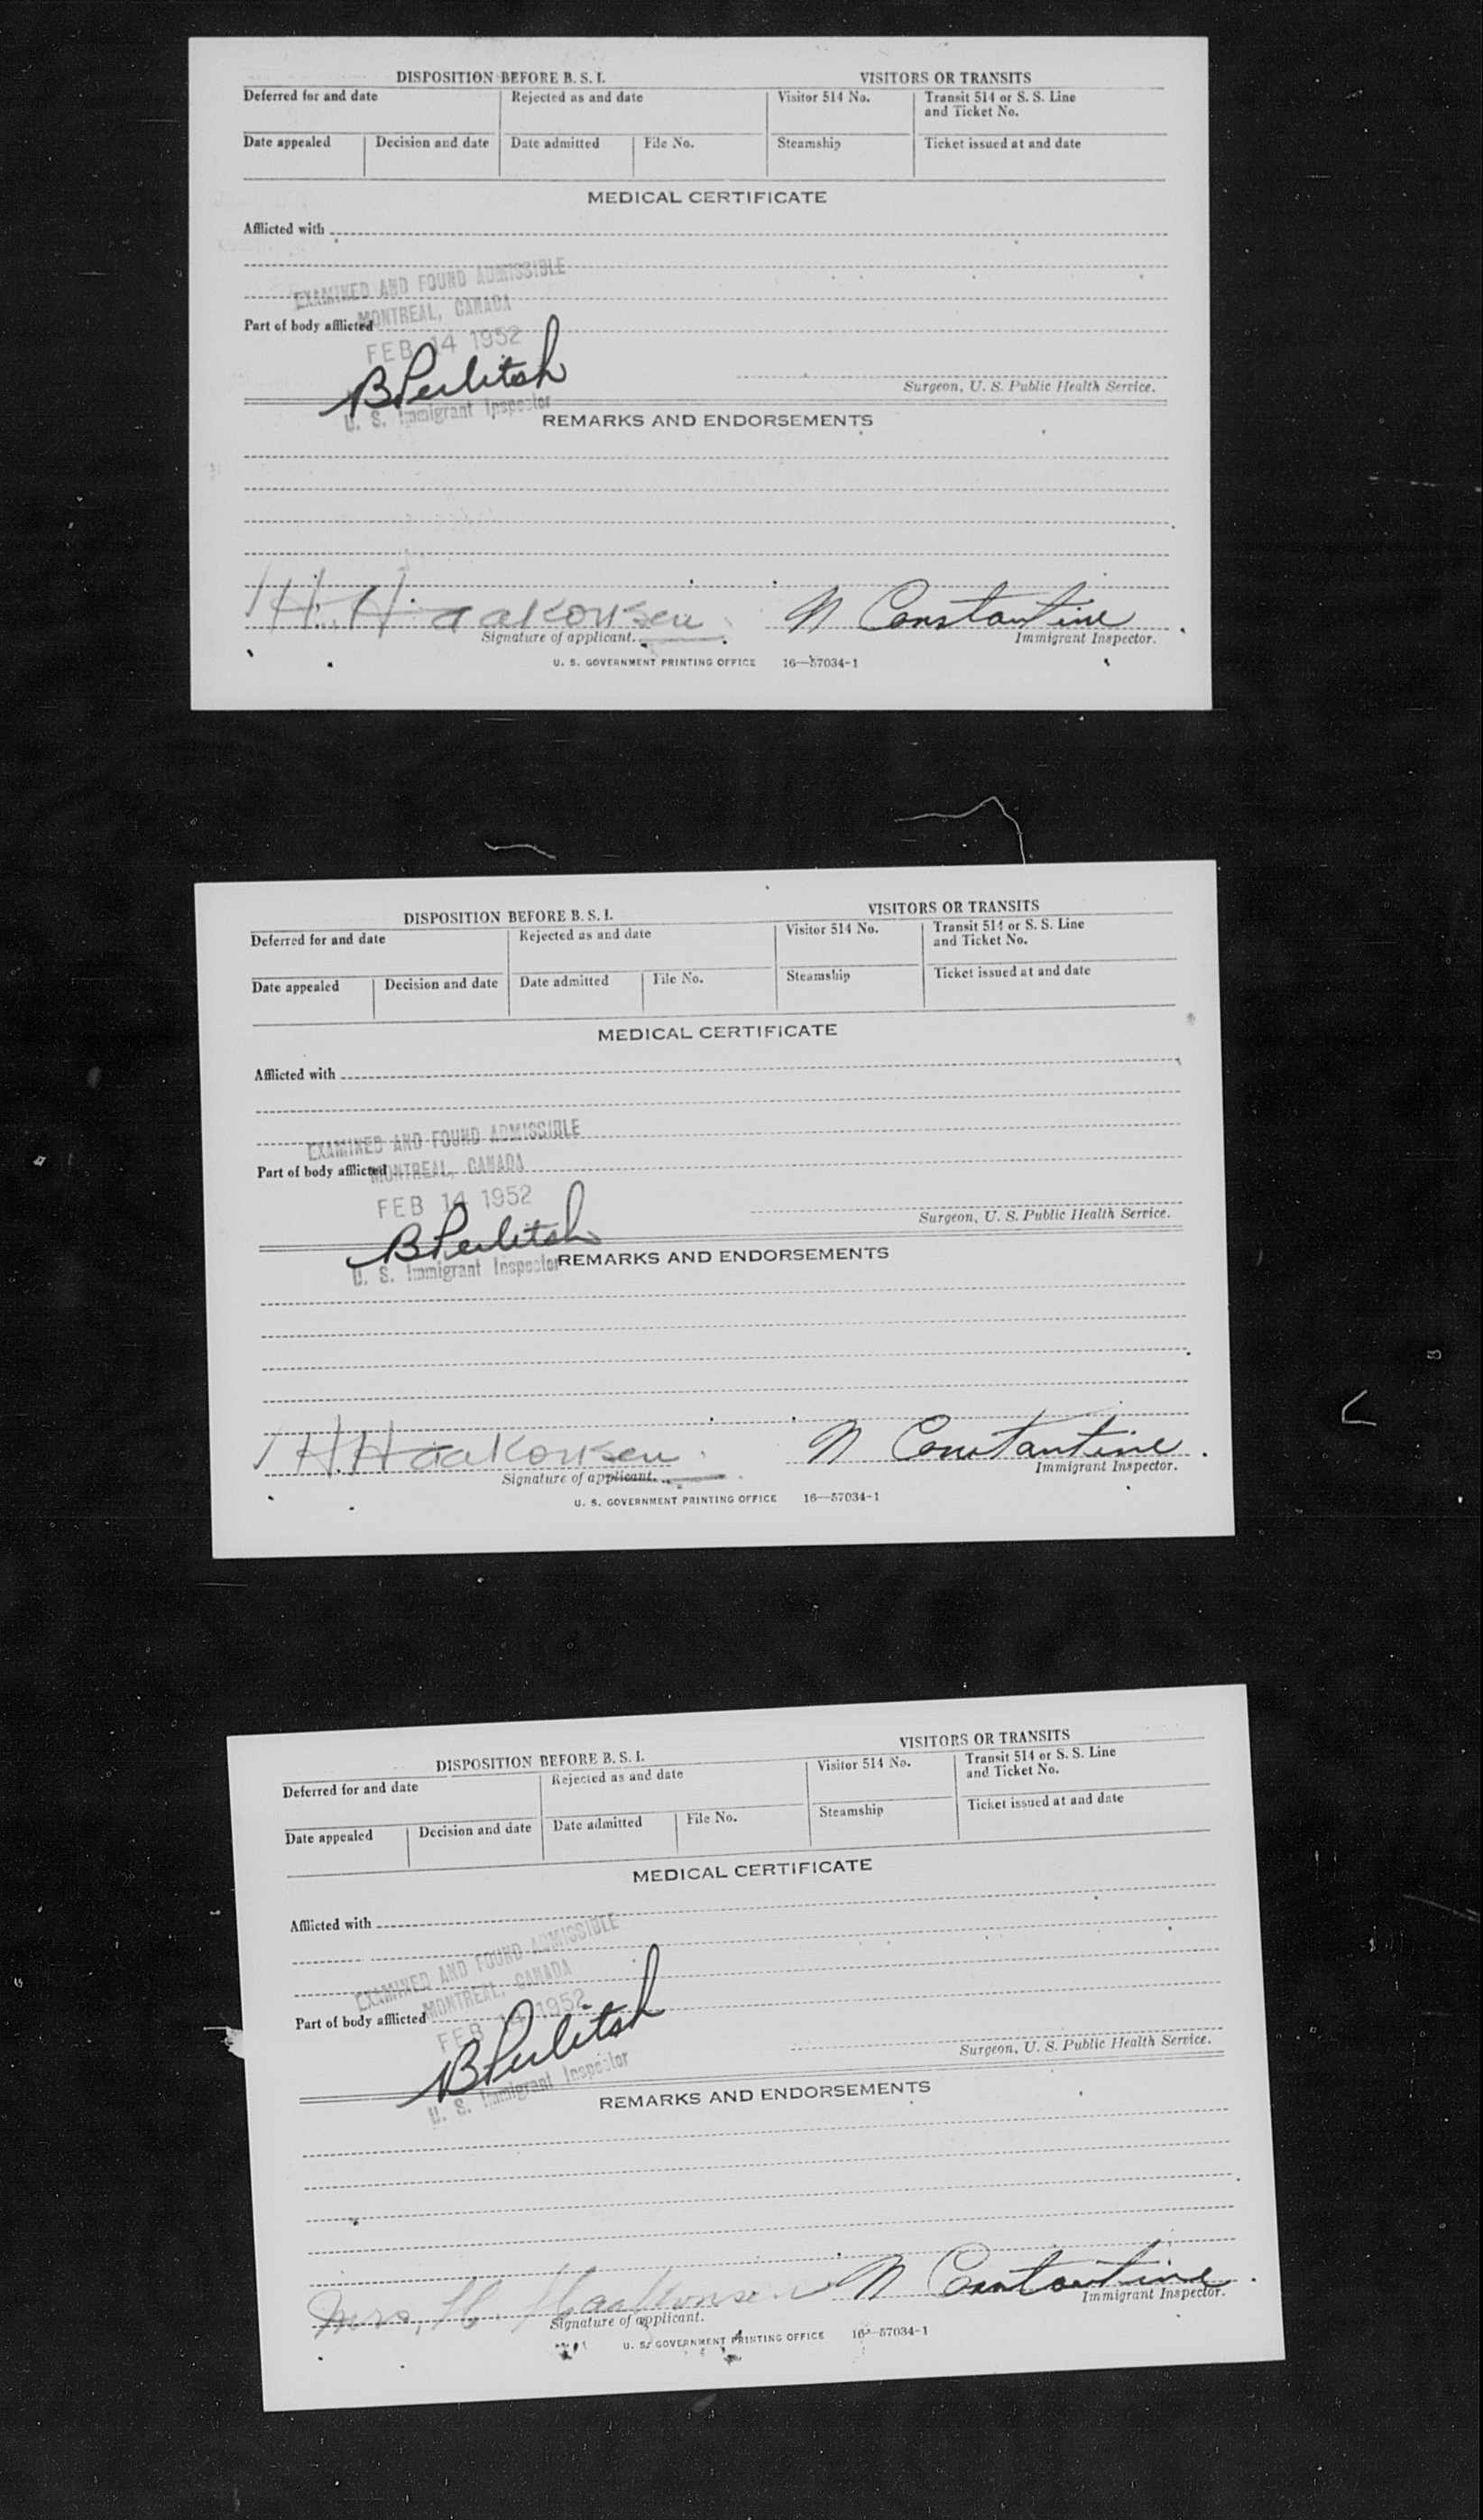 DISPOSITION BEFORE B. S. I.
VISITORS OR TRANSITS
Deferred for and date
Rejected as and date
Visitor 514 No.
Transit 514 or S. S. Line
and Ticket No.
Date appealed
Decision and date
Date admitted
File No.
Steamship
Ticket issued at and date
MEDICAL CERTIFICATE
Afflicted with
EXAMINED AND FOUND ADMISSIBLE
MONTREAL, CANADA
Part of body afflicted
FEB 14 1952
Surgeon, U. S. Public Health Service.
U. S. Immigrant Inspector
REMARKS AND ENDORSEMENTS
H. Haakonsen
N Constantine
Signature of applicant.
Immigrant Inspector.
U. S. GOVERNMENT PRINTING OFFICE 16—57034-1
DISPOSITION BEFORE B. S. I.
VISITORS OR TRANSITS
Deferred for and date
Rejected as and date
Visitor 514 No.
Transit 514 or S. S. Line
and Ticket No.
Date appealed
Decision and date
Date admitted
File No.
Steamship
Ticket issued at and date
MEDICAL CERTIFICATE
Afflicted with
EXAMINED AND FOUND ADMISSIBLE
Part of body afflicted
MONTREAL, CANADA
FEB 14 1952
Surgeon, U. S. Public Health Service.
U. S. Immigrant Inspector
REMARKS AND ENDORSEMENTS
H. Haakonsen
N Constantine
Signature of applicant.
Immigrant Inspector.
U. S. GOVERNMENT PRINTING OFFICE 16—57034-1
DISPOSITION BEFORE B. S. I.
VISITORS OR TRANSITS
Deferred for and date
Rejected as and date
Visitor 514 No.
Transit 514 or S. S. Line
and Ticket No.
Date appealed
Decision and date
Date admitted
File No.
Steamship
Ticket issued at and date
MEDICAL CERTIFICATE
Afflicted with
EXAMINED AND FOUND ADMISSIBLE
MONTREAL, CANADA
Part of body afflicted
FEB 14 1952
Surgeon, U. S. Public Health Service.
U. S. Immigrant Inspector
REMARKS AND ENDORSEMENTS
Mrs. H. Haakonsen
N Constantine
Signature of applicant.
Immigrant Inspector.
U. S. GOVERNMENT PRINTING OFFICE 16—57034-1